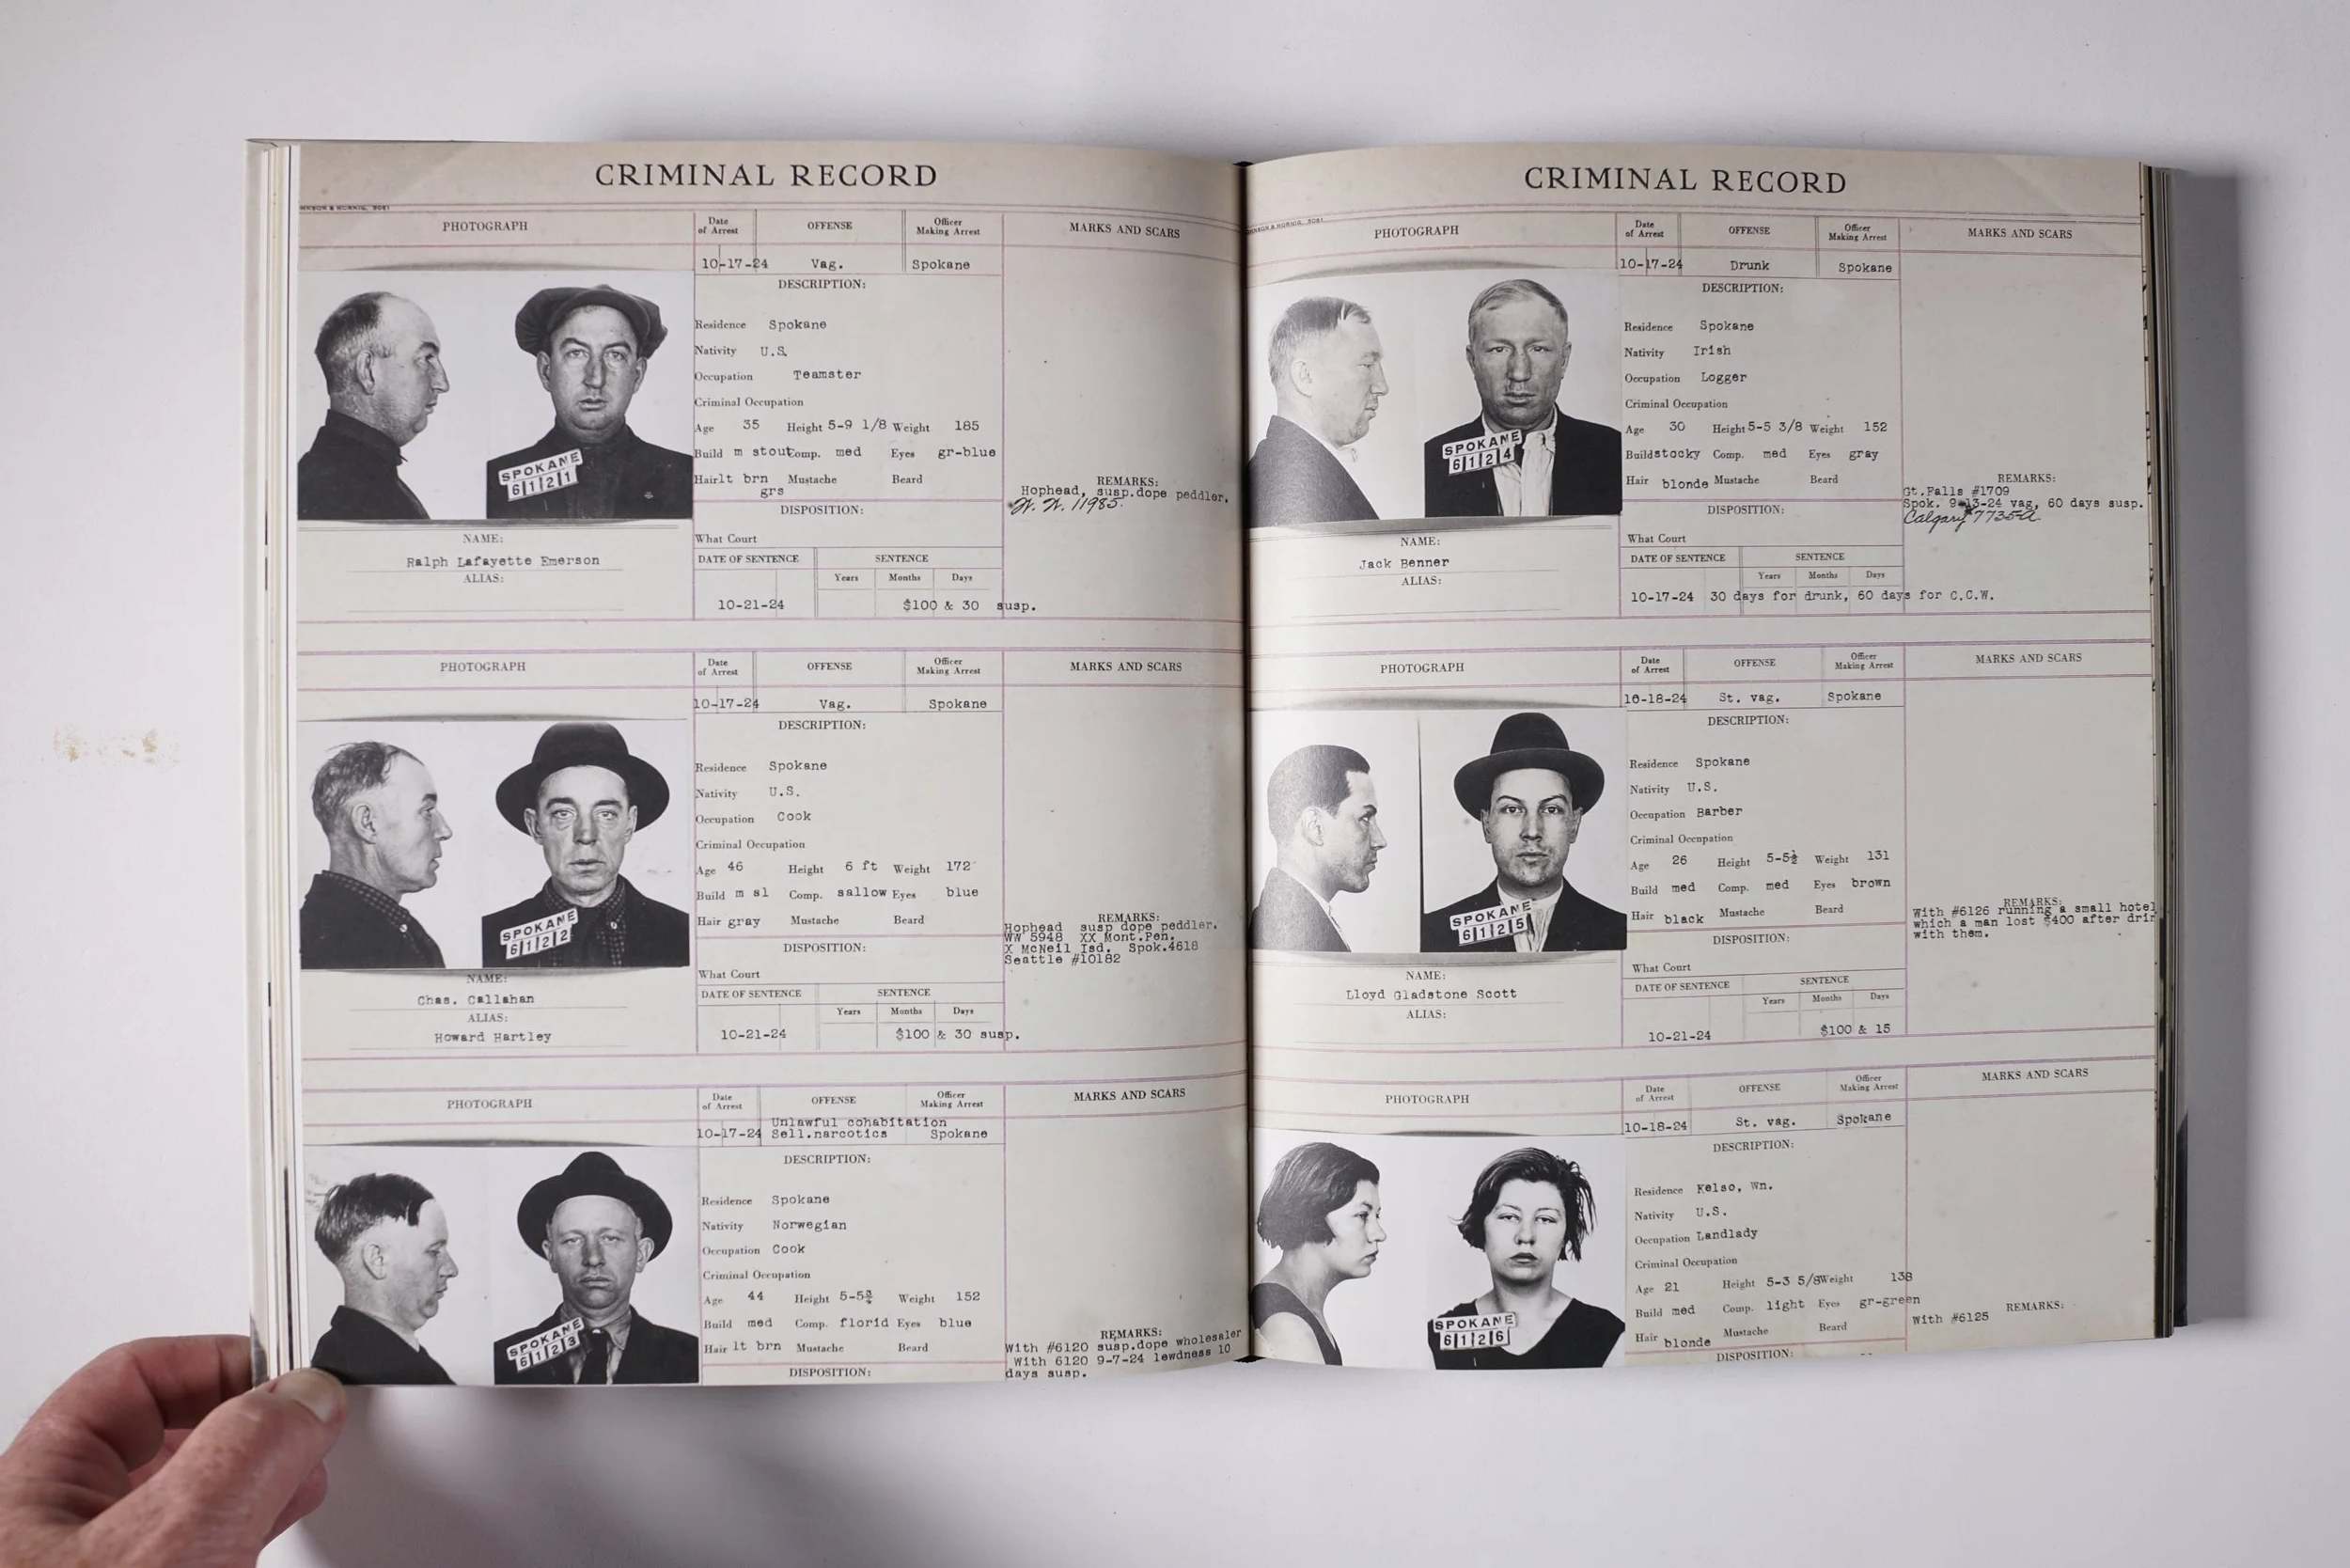 CRIMINAL RECORD
PHOTOGRAPH
Date of Arrest
OFFENSE
Officer Making Arrest
MARKS AND SCARS
10-17-24 Vag. Spokane
DESCRIPTION:
Residence Spokane
Nativity U.S.
Occupation Teamster
Criminal Occupation
Age 35 Height 5-9 1/8 Weight 185
Build m stout Comp. med Eyes gr-blue
Hair lt brn Mustache Beard
grs
SPOKANE
6121
REMARKS:
Hophead, susp.dope peddler.
11985.
DISPOSITION:
NAME:
What Court
Ralph Lafayette Emerson
DATE OF SENTENCE SENTENCE
ALIAS:
Years Months Days
10-21-24 $100 & 30 susp.
PHOTOGRAPH
Date of Arrest
OFFENSE
Officer Making Arrest
MARKS AND SCARS
10-17-24 Vag. Spokane
DESCRIPTION:
Residence Spokane
Nativity U.S.
Occupation Cook
Criminal Occupation
Age 46 Height 6 ft Weight 172
Build m sl Comp. sallow Eyes blue
Hair gray Mustache Beard
SPOKANE
6122
REMARKS:
Hophead susp dope peddler.
WW 5948 XX Mont.Pen.
X McNeil Isd. Spok.4618
Seattle #10182
DISPOSITION:
NAME:
What Court
Chas. Callahan
DATE OF SENTENCE SENTENCE
ALIAS:
Years Months Days
Howard Hartley
10-21-24 $100 & 30 susp.
PHOTOGRAPH
Date of Arrest
OFFENSE
Officer Making Arrest
MARKS AND SCARS
Unlawful cohabitation
10-17-24 Sell.narcotics Spokane
DESCRIPTION:
Residence Spokane
Nativity Norwegian
Occupation Cook
Criminal Occupation
Age 44 Height 5-5¾ Weight 152
Build med Comp. florid Eyes blue
Hair lt brn Mustache Beard
SPOKANE
6123
REMARKS:
With #6120 susp.dope wholesaler
With 6120 9-7-24 lewdness 10
days susp.
DISPOSITION:
CRIMINAL RECORD
PHOTOGRAPH
Date of Arrest
OFFENSE
Officer Making Arrest
MARKS AND SCARS
10-17-24 Drunk Spokane
DESCRIPTION:
Residence Spokane
Nativity Irish
Occupation Logger
Criminal Occupation
Age 30 Height 5-5 3/8 Weight 152
Build stocky Comp. med Eyes gray
Hair blonde Mustache Beard
SPOKANE
6124
REMARKS:
Gt.Falls #1709
Spok. 9-13-24 vag, 60 days susp.
Calgary 7735-A
DISPOSITION:
NAME:
What Court
Jack Benner
DATE OF SENTENCE SENTENCE
ALIAS:
Years Months Days
10-17-24 30 days for drunk, 60 days for C.C.W.
PHOTOGRAPH
Date of Arrest
OFFENSE
Officer Making Arrest
MARKS AND SCARS
10-18-24 St. vag. Spokane
DESCRIPTION:
Residence Spokane
Nativity U.S.
Occupation Barber
Criminal Occupation
Age 26 Height 5-5½ Weight 131
Build med Comp. med Eyes brown
Hair black Mustache Beard
SPOKANE
6125
REMARKS:
With #6126 running a small hotel
which a man lost $400 after drin
with them.
DISPOSITION:
NAME:
What Court
Lloyd Gladstone Scott
DATE OF SENTENCE SENTENCE
ALIAS:
Years Months Days
10-21-24 $100 & 15
PHOTOGRAPH
Date of Arrest
OFFENSE
Officer Making Arrest
MARKS AND SCARS
10-18-24 St. vag. Spokane
DESCRIPTION:
Residence Kelso, Wn.
Nativity U.S.
Occupation Landlady
Criminal Occupation
Age 21 Height 5-3 5/8 Weight 138
Build med Comp. light Eyes gr-green
Hair blonde Mustache Beard
SPOKANE
6126
REMARKS:
With #6125
DISPOSITION: